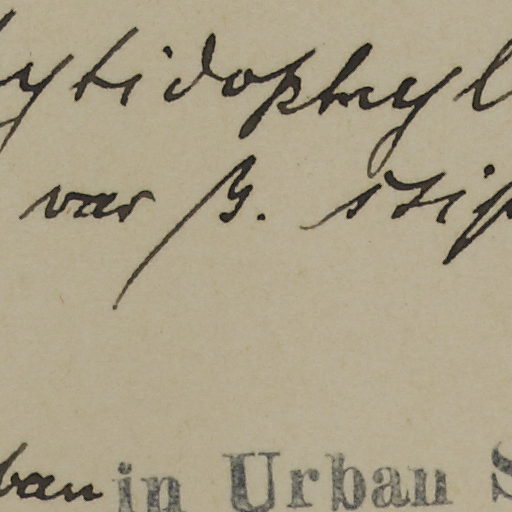 ytidophyl
var β. stip
ban in Urban S